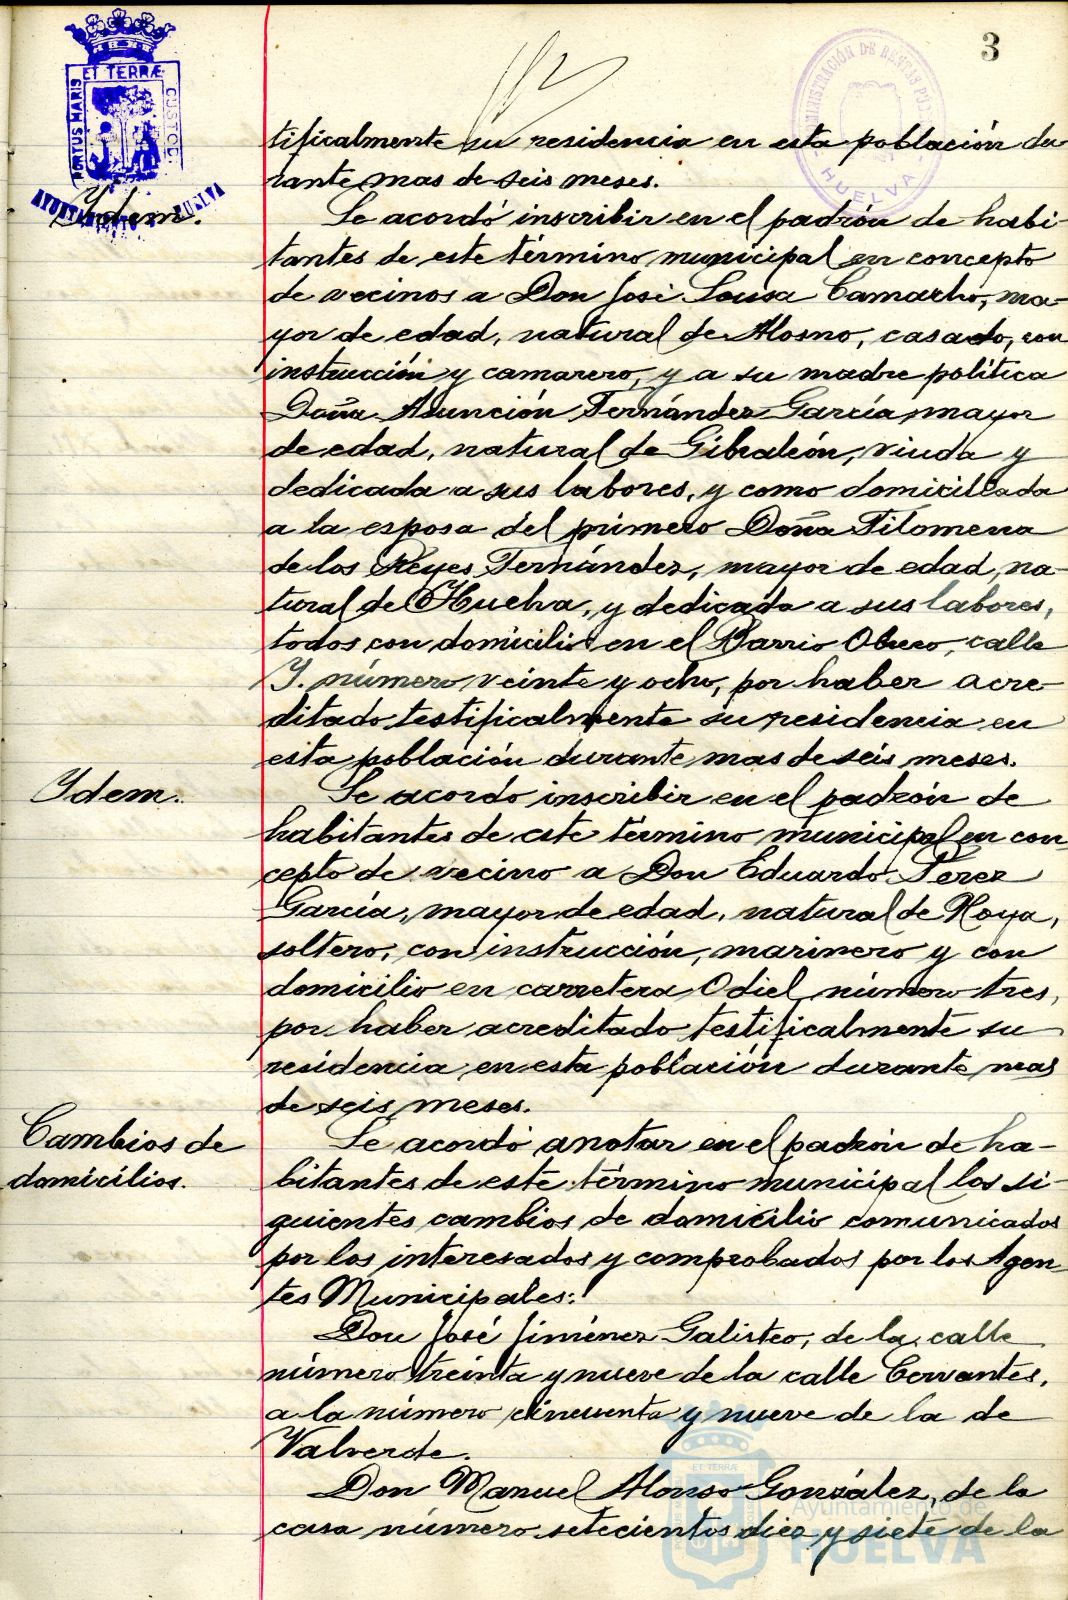 3
PORTUS MARIS
ET TERRÆ
CUSTOD.
AYUNTAMIENTO HUELVA
ADMINISTRACIÓN DE RENTAS PÚB
HUELVA
tificalmente su residencia en esta población du
rante mas de seis meses.
Ydem.
Se acordó inscribir en el padrón de habi-
tantes de este término municipal en concepto
de vecinos a Don José Sousa Camacho, ma-
yor de edad, natural de Alosno, casado, con
instrucción y camarero, y a su madre política
Doña Asunción Fernández García, mayor
de edad, natural de Gibraleón, viuda y
dedicada a sus labores, y como domiciliada
a la esposa del primero Doña Filomena
de los Reyes Fernández, mayor de edad, na-
tural de Huelva, y dedicada a sus labores,
todos con domicilio en el Barrio Obrero, calle
Y. número veinte y ocho, por haber acre-
ditado testificalmente su residencia en
esta población durante mas de seis meses.
Ydem.
Se acordó inscribir en el padrón de
habitantes de este término municipal en con
cepto de vecino a Don Eduardo Perez
García, mayor de edad, natural de Noya,
soltero, con instrucción, marinero y con
domicilio en carretera Odiel número tres,
por haber acreditado testificalmente su
residencia en esta población durante mas
de seis meses.
Cambios de
domicilios.
Se acordó anotar en el padrón de ha-
bitantes de este término municipal los si-
guientes cambios de domicilio comunicados
por los interesados y comprobados por los Agen-
tes Municipales:
Don José Jiménez Galisteo, de la calle
número treinta y nueve de la calle Cervantes,
a la número cincuenta y nueve de la de
Valverde.
Don Manuel Alonso González, de la
casa número setecientos diez y siete de la
ET TERRÆ
Ayuntamiento de
HUELVA